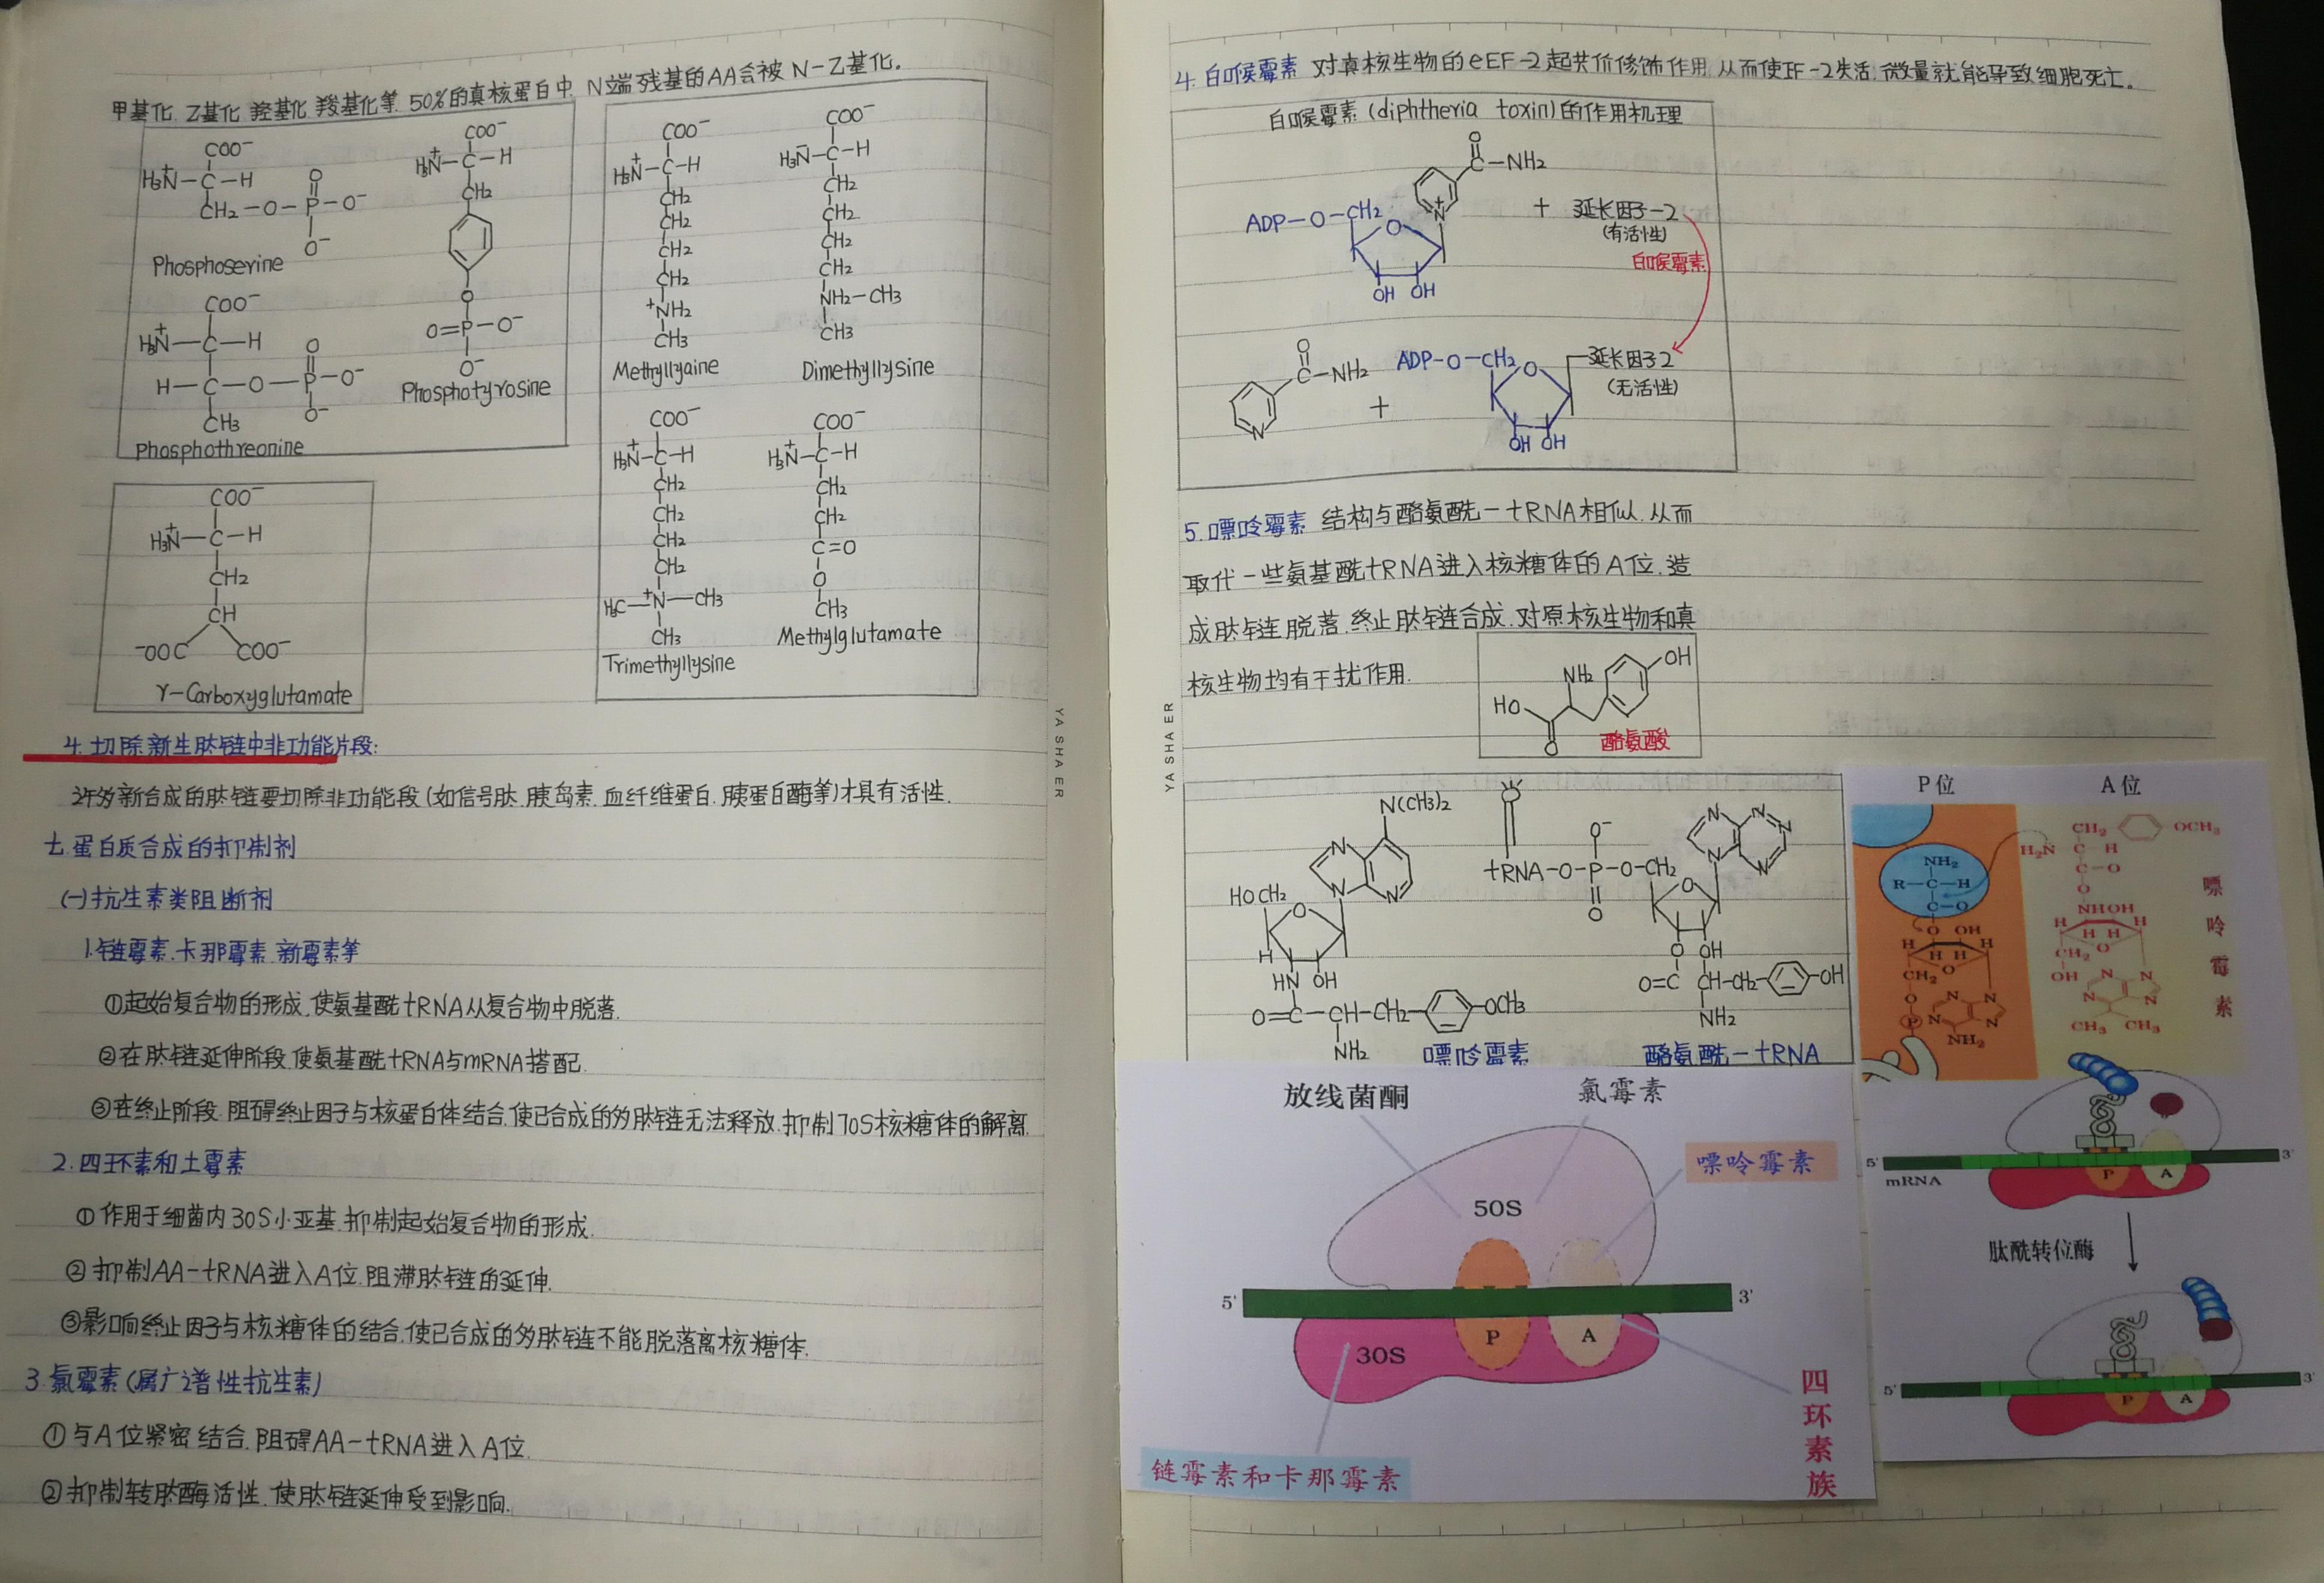 甲基化.乙基化.羟基化.羧基化等.50%的真核蛋白中.N端残基的AA会被N-乙基化.
COO⁻
H₃N⁺-C-H
CH₂-O-P-O⁻
O
O⁻
Phosphoserine
COO⁻
H₃N⁺-C-H
CH₂
O
O=P-O⁻
O⁻
Phosphotyrosine
COO⁻
H₃N⁺-C-H
H-C-O-P-O⁻
O
O⁻
CH₃
Phosphothreonine
COO⁻
H₃N⁺-C-H
CH₂
CH₂
CH₂
CH₂
⁺NH₂
CH₃
Methyllyaine
COO⁻
H₃N-C-H
CH₂
CH₂
CH₂
CH₂
NH₂-CH₃
CH₃
Dimethyllysine
COO⁻
H₃N⁺-C-H
CH₂
CH₂
CH₂
CH₂
H₃C-N⁺-CH₃
CH₃
Trimethyllysine
COO⁻
H₃N⁺-C-H
CH₂
CH₂
C=O
O
CH₃
Methylglutamate
COO⁻
H₃N⁺-C-H
CH₂
CH
⁻OOC COO⁻
γ-Carboxyglutamate
4.切除新生肽链中非功能片段:
许多新合成的肽链要切除非功能段(如信号肽.胰岛素.血纤维蛋白.胰蛋白酶等)才具有活性.
七.蛋白质合成的抑制剂
(一)抗生素类阻断剂
1.链霉素.卡那霉素.新霉素等
①起始复合物的形成.使氨基酰tRNA从复合物中脱落.
②在肽链延伸阶段.使氨基酰tRNA与mRNA搭配.
③在终止阶段.阻碍终止因子与核蛋白体结合.使已合成的多肽链无法释放.抑制70S核糖体的解离.
2.四环素和土霉素
①作用于细菌内30S小亚基.抑制起始复合物的形成.
②抑制AA-tRNA进入A位.阻滞肽链的延伸.
③影响终止因子与核糖体的结合.使已合成的多肽链不能脱落离核糖体.
3.氯霉素(属广谱性抗生素)
①与A位紧密结合.阻碍AA-tRNA进入A位.
②抑制转肽酶活性.使肽链延伸受到影响.
YA SHA ER
YA SHA ER
4.白喉霉素 对真核生物的eEF-2起共价修饰作用.从而使EF-2失活.微量就能导致细胞死亡.
白喉霉素(diphtheria toxin)的作用机理
O
C-NH₂
N⁺
ADP-O-CH₂
O
OH OH
+ 延长因子-2
(有活性)
白喉霉素
O
C-NH₂
N
+
ADP-O-CH₂
O
延长因子2
(无活性)
OH OH
5.嘌呤霉素 结构与酪氨酰-tRNA相似.从而
取代一些氨基酰tRNA进入核糖体的A位.造
成肽链脱落.终止肽链合成.对原核生物和真
核生物均有干扰作用.
NH₂
OH
HO
O
酪氨酸
N(CH₃)₂
N
N
N
N
HOCH₂
O
H
HN OH
O=C-CH-CH₂-OCH₃
NH₂
嘌呤霉素
tRNA-O-P-O-CH₂
O⁻
O
N
N
N
N
N
O
O OH
O=C CH-CH₂-OH
NH₂
酪氨酰-tRNA
P位 A位
NH₂
R-C-H
C-O
O OH
H H
H H
O
CH₂
O
P
N
N
N
N
NH₂
CH₂ OCH₃
H₂N C H
C-O
O
NHOH
H H
H H
O
CH₂
OH
N
N
N
N
CH₃ CH₃
嘌呤霉素
放线菌酮
氯霉素
嘌呤霉素
50S
5' 3'
P A
30S
四环素族
链霉素和卡那霉素
5' 3'
mRNA
P A
肽酰转位酶
5' 3'
P A